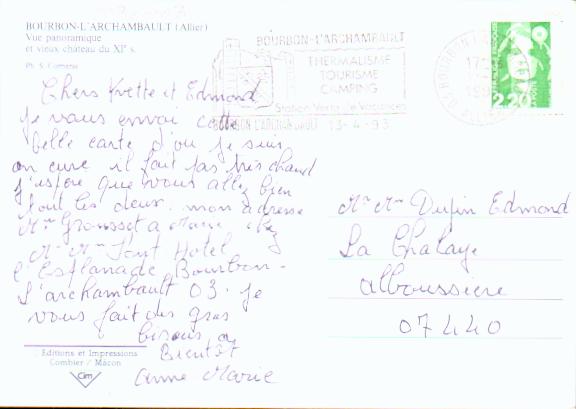 BOURBON-L'ARCHAMBAULT (Allier)
Vue panoramique
et vieux château du XIe s.
Chers Yvette et Edmond
je vous envoi cette
belle carte d'ou je suis
en cure il fait pas très chaud
j'espère que vous allez bien
tout les deux. mon adresse
Mme Grousset a Marie chez
Mr Mme Hotel
l'Esplanade Bourbon-
L'archambault 03. je
vous fait des gros
bisous, a
Bientôt
Anne Marie
Editions et Impressions
Combier / Macon
Cim
BOURBON-L'ARCHAMBAULT
THERMALISME
TOURISME
CAMPING
Station Verte de Vacances
BOURBON L'ARCHAMBAULT 13-4-93
2,20
Mr Mme Dupin Edmond
La Chalaye
alboussiere
07440